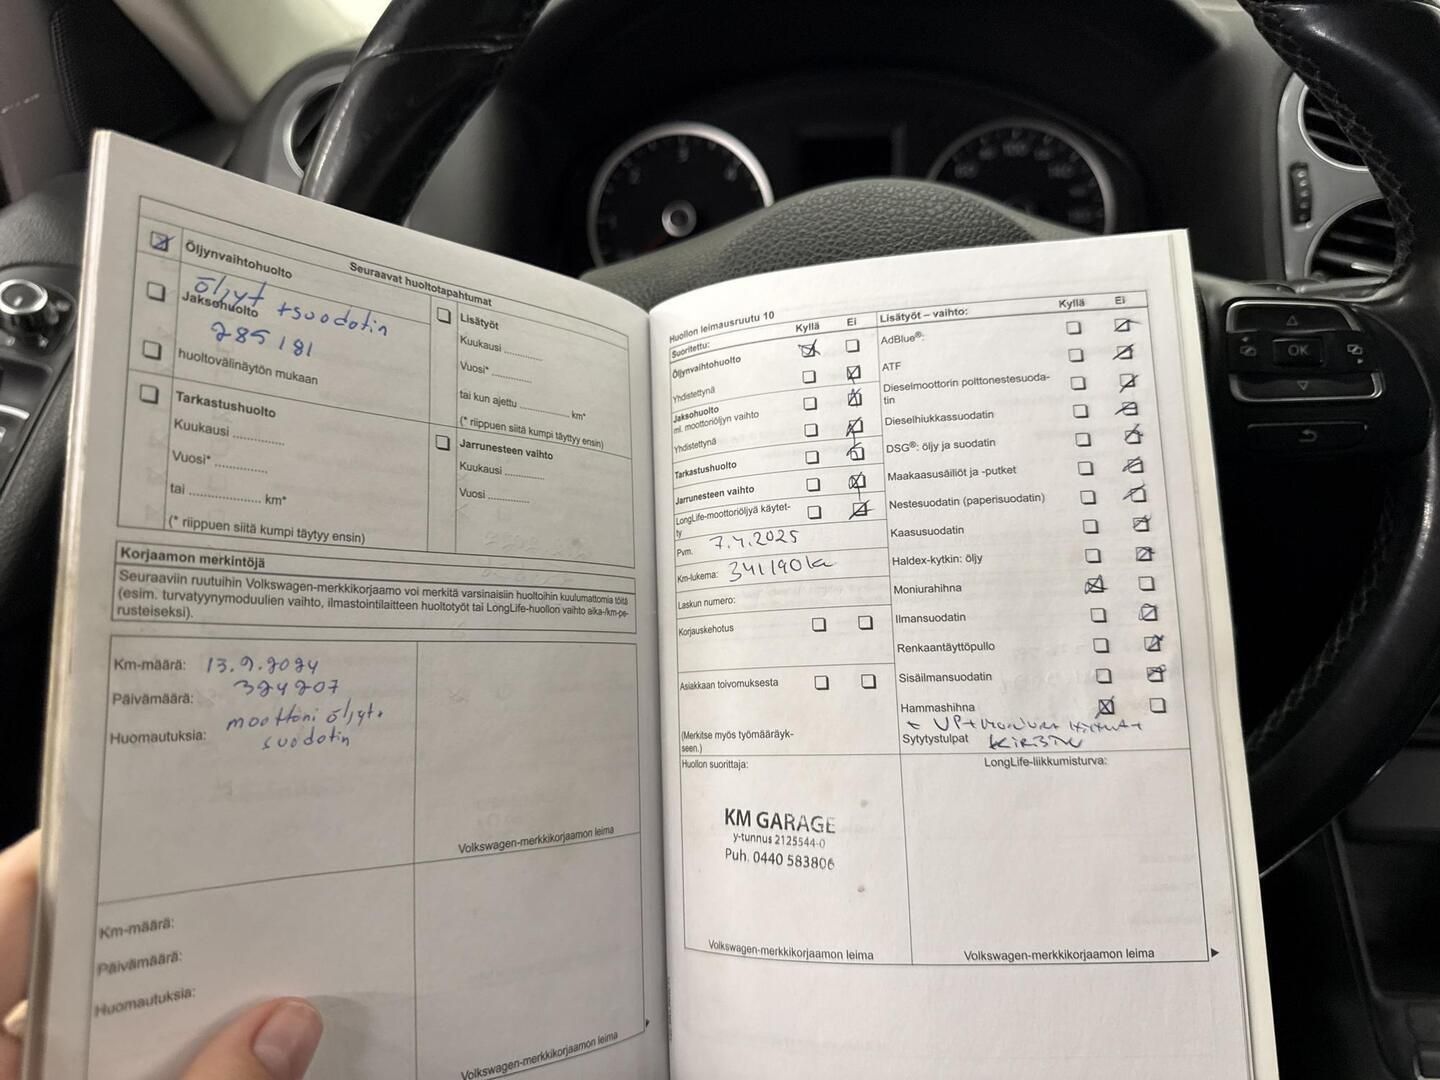 Seuraavat huoltotapahtumat
Öljynvaihtohuolto
öljyt + suodatin
Jaksohuolto
285181
huoltovälinäytön mukaan
Tarkastushuolto
Kuukausi ..............
Vuosi* ..............
tai .................... km*
(* riippuen siitä kumpi täytyy ensin)
Lisätyöt
Kuukausi ..............
Vuosi* ..............
tai kun ajettu .................. km*
(* riippuen siitä kumpi täyttyy ensin)
Jarrunesteen vaihto
Kuukausi ..............
Vuosi ..............
Korjaamon merkintöjä
Seuraaviin ruutuihin Volkswagen-merkkikorjaamo voi merkitä varsinaisiin huoltoihin kuulumattomia töitä
(esim. turvatyynymoduulien vaihto, ilmastointilaitteen huoltotyöt tai LongLife-huollon vaihto aika-/km-pe-
rusteiseksi).
Km-määrä: 13.9.2024
Päivämäärä: 324207
Huomautuksia: moottori öljyt+
suodatin
Volkswagen-merkkikorjaamon leima
Km-määrä:
Päivämäärä:
Huomautuksia:
Volkswagen-merkkikorjaamon leima
Huollon leimausruutu 10
Suoritettu: Kyllä Ei
Öljynvaihtohuolto
Yhdistettynä
Jaksohuolto
ml. moottoriöljyn vaihto
Yhdistettynä
Tarkastushuolto
Jarrunesteen vaihto
LongLife-moottoriöljyä käytet-
ty
Pvm. 7.4.2025
Km-lukema: 341190
Laskun numero:
Korjauskehotus
Asiakkaan toivomuksesta
(Merkitse myös työmääräyk-
seen.)
Huollon suorittaja:
KM GARAGE
y-tunnus 2125544-0
Puh. 0440 583806
Volkswagen-merkkikorjaamon leima
Lisätyöt – vaihto: Kyllä Ei
AdBlue®:
ATF
Dieselmoottorin polttonestesuoda-
tin
Dieselhiukkassuodatin
DSG®: öljy ja suodatin
Maakaasusäiliöt ja -putket
Nestesuodatin (paperisuodatin)
Kaasusuodatin
Haldex-kytkin: öljy
Moniurahihna
Ilmansuodatin
Renkaantäyttöpullo
Sisäilmansuodatin
Hammashihna
+ VP +
Sytytystulpat
LongLife-liikkumisturva:
Volkswagen-merkkikorjaamon leima
OK